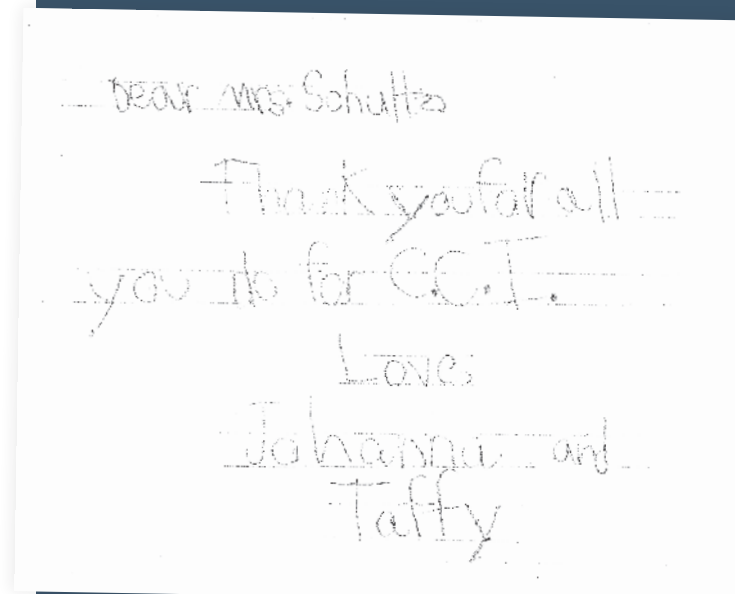 Dear Mrs. Schultz
Thank you for all
you do for C.C.T.
Love
Johanna and
Taffy